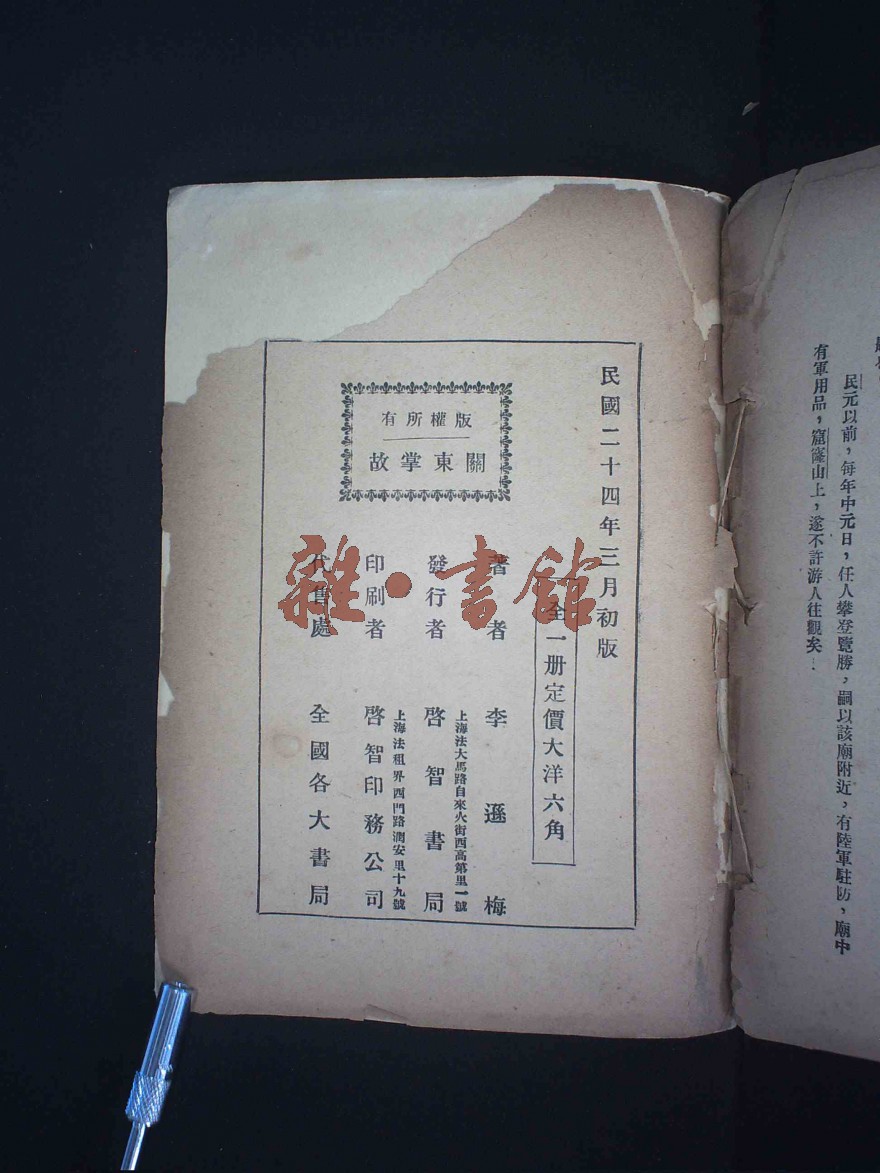 民元以前，每年中元日，任人攀登覽勝，嗣以該廟附近，有陸軍駐防，廟中
有軍用品，窟窿山上，遂不許游人往觀矣
民國二十四年三月初版
全一册定價大洋六角
版權所有
關東掌故
著者 李遜梅
發行者 啓智書局
上海法大馬路自來火街西高第里一號
印刷者 啓智印務公司
上海法租界西門路潤安里十九號
代售處 全國各大書局
雜·書館